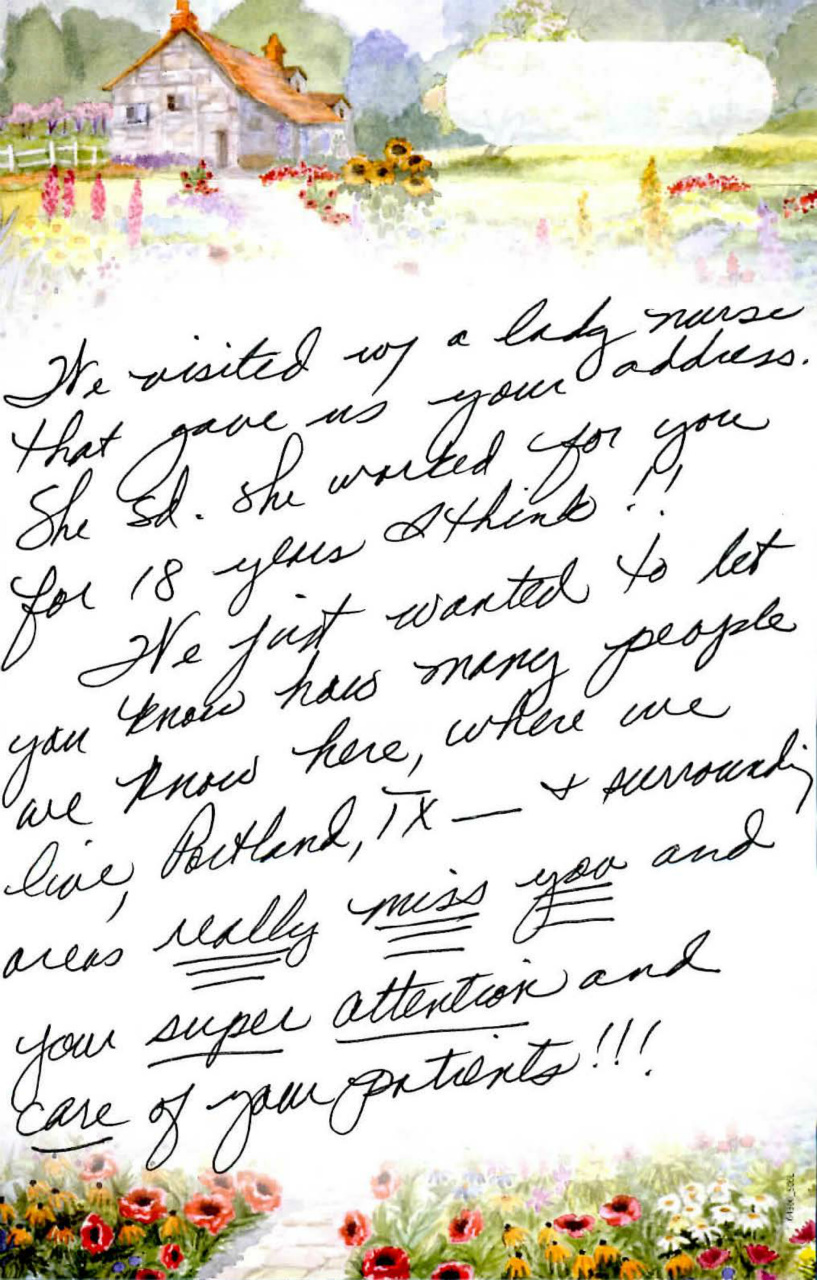 We visited w/ a lady nurse
that gave us your address.
She sd. she worked for you
for 18 years I think!!
We just wanted to let
you know how many people
we know here, where we
live, Portland, TX — & surrounding
areas really miss you and
your super attention and
care of your patients!!!